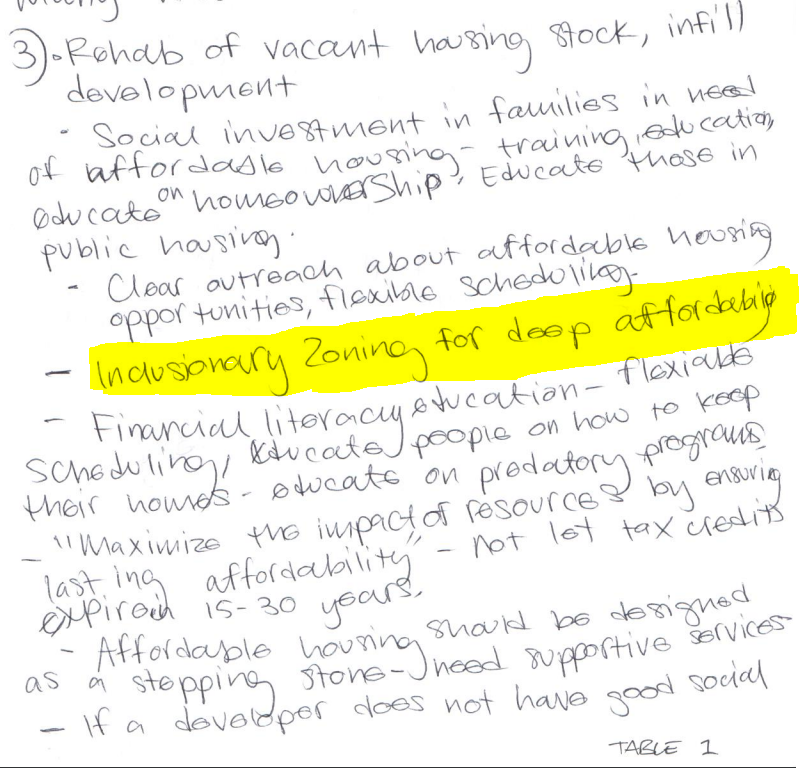 3) • Rehab of vacant housing stock, infill
development
- Social investment in families in need
of affordable housing - training, education,
educate on homeownership, Educate those in
public housing.
- Clear outreach about affordable housing
opportunities, flexible scheduling.
- Inclusionary Zoning for deep affordability
- Financial literacy education - flexiable
scheduling, educate people on how to keep
their homes - educate on predatory programs
- "Maximize the impact of resources by ensuring
lasting affordability" - not let tax credits
expire in 15-30 years.
- Affordable housing should be designed
as a stepping stone - need supportive services
- If a developer does not have good social
TABLE 1